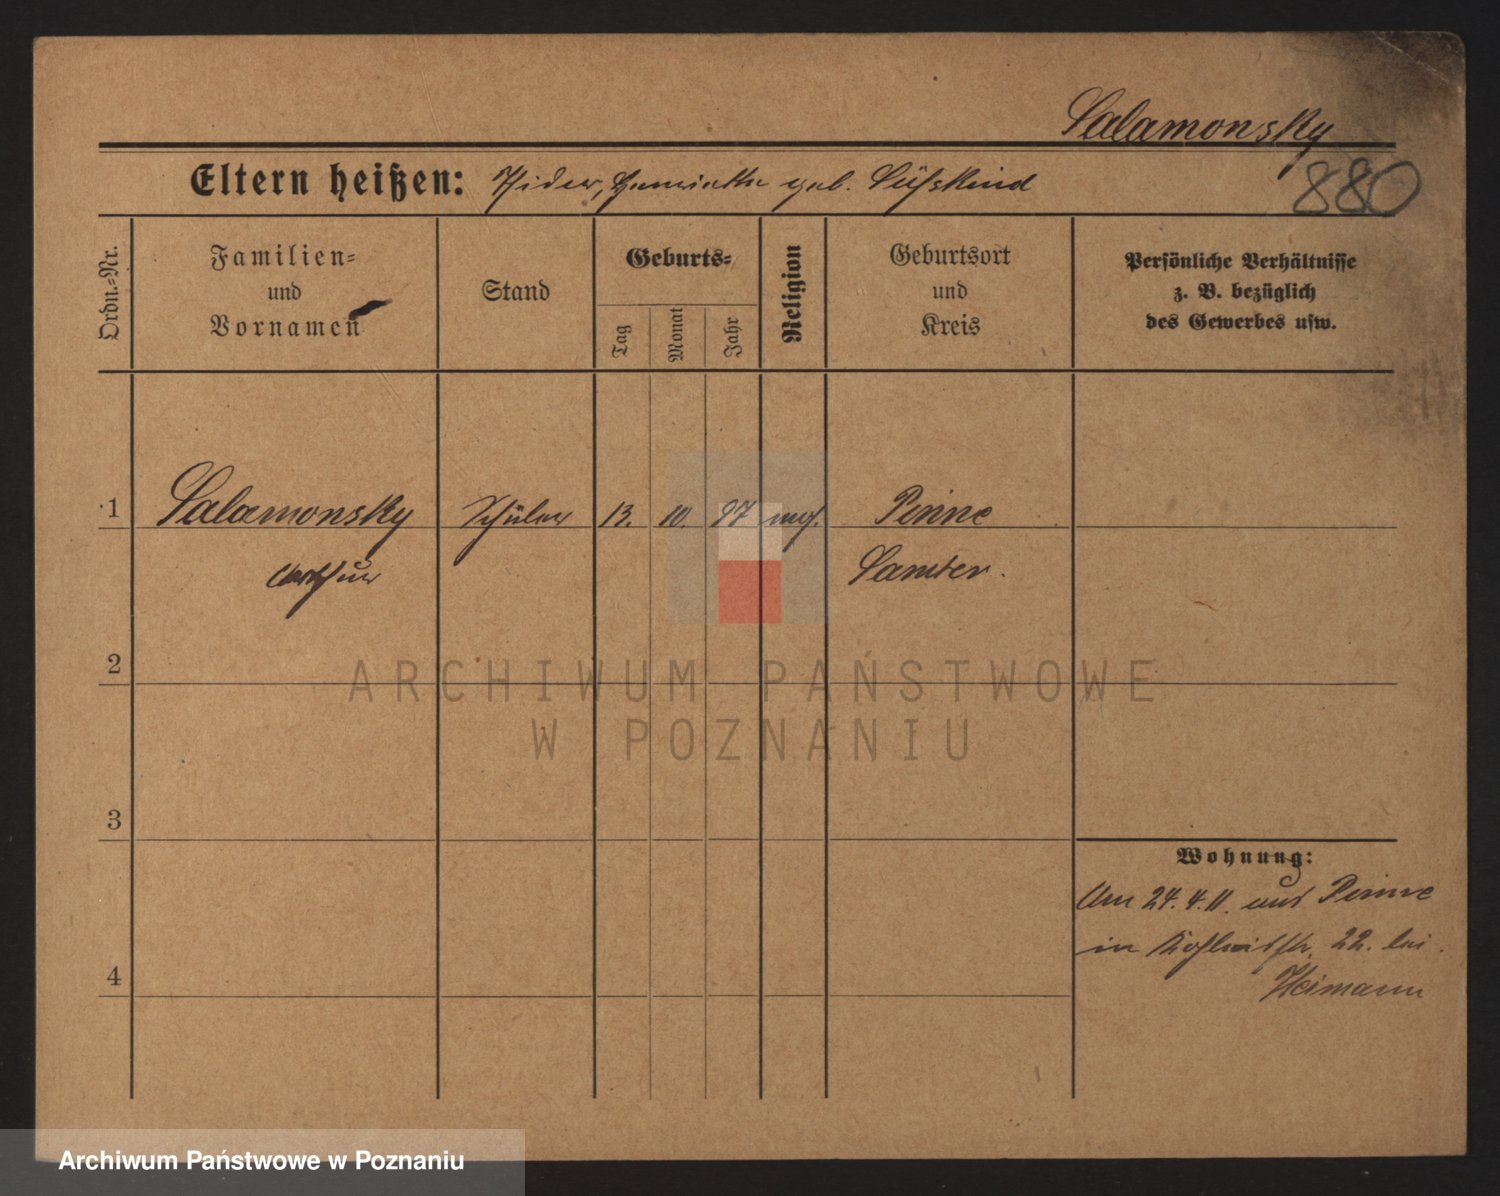 Salamonsky
880
Eltern heißen: Isider, Henriette geb. Süßkind
Ordn.-Nr.
Familien-
und
Vornamen
Stand
Geburts-
Tag
Monat
Jahr
Religion
Geburtsort
und
Kreis
Persönliche Verhältnisse
z. B. bezüglich
des Gewerbes usw.
1 Salamonsky Schüler 13. 10. 97 mos. Pinne
Arthur Samter.
2
3
4
Wohnung:
Am 24.4.11. aus Pinne
in 22. bei
Heimann
ARCHIWUM PAŃSTWOWE
W POZNANIU
Archiwum Państwowe w Poznaniu